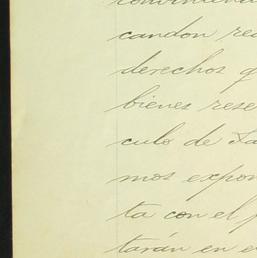 candon rea
derechos q
bienes rese
culo de Ta
mos expon
ta con el p
tarán en e